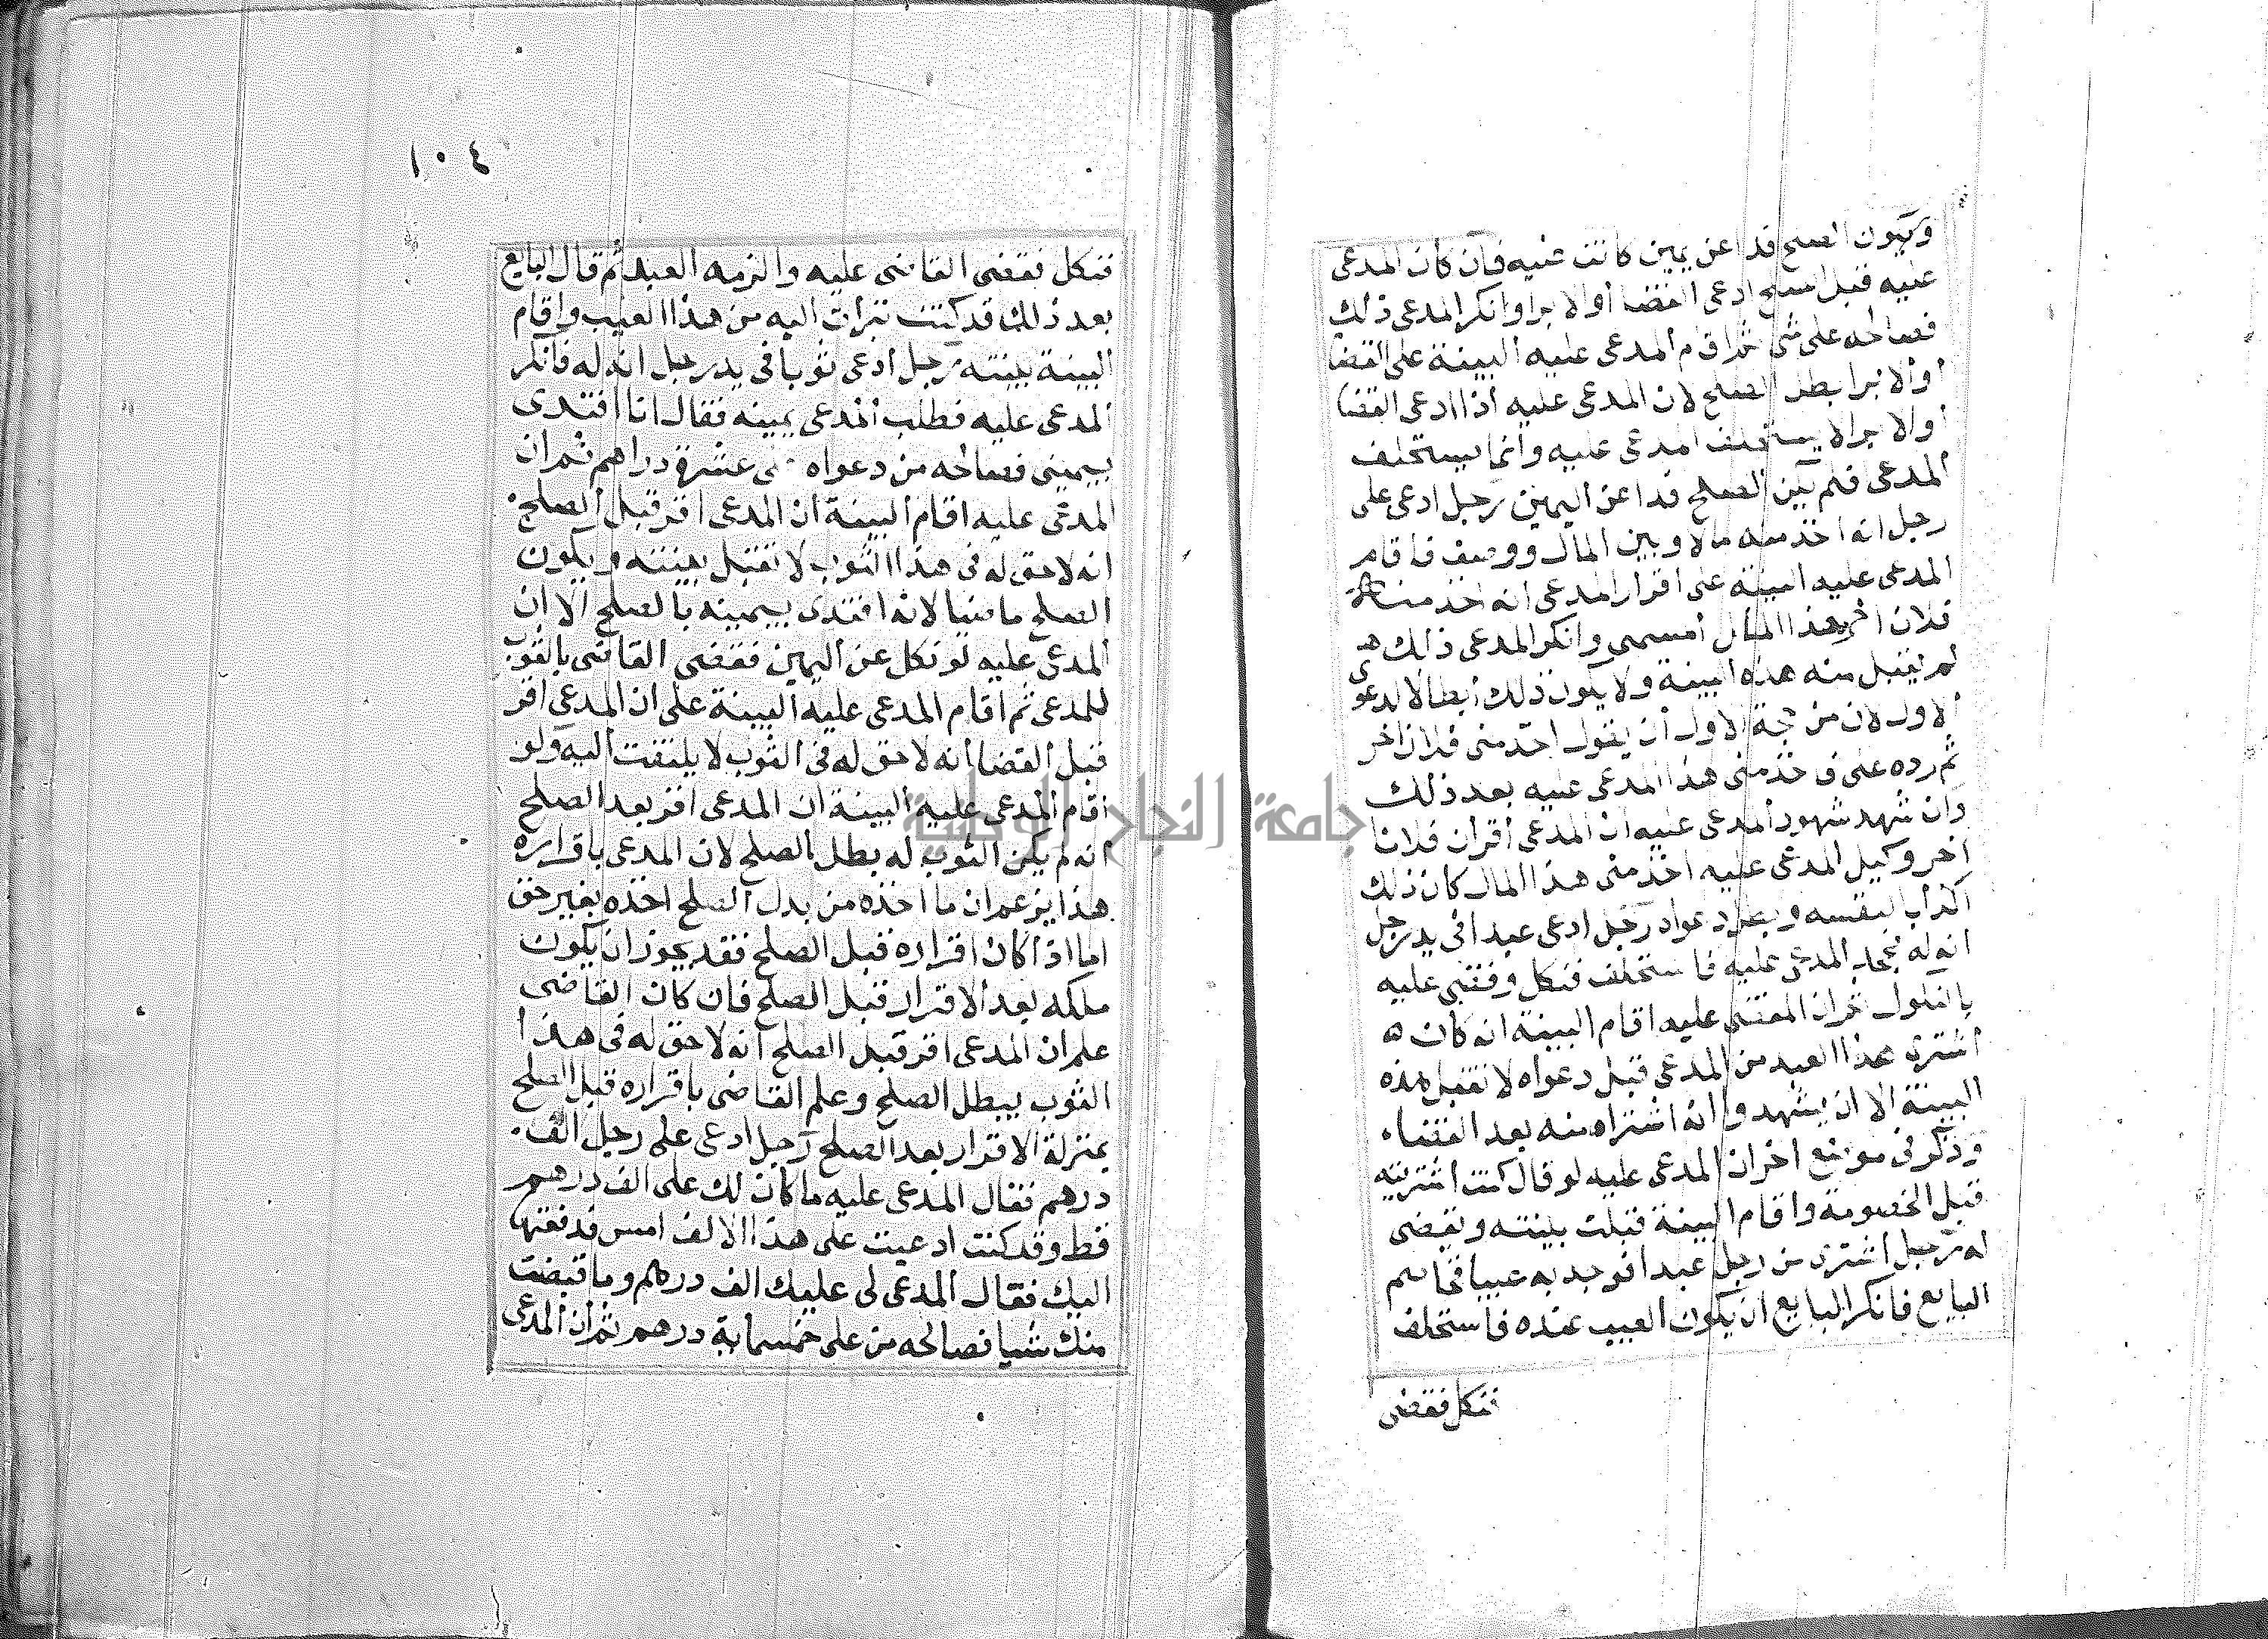 ويكون الصلح فدا عن يمين كانت عليه فان كان المدعى
عليه قبل الصلح ادعى القضا أو الابرا وانكر المدعى ذلك
فصالحه على شى ثم اقام المدعى عليه البينة على القضا
أو الابرا بطل الصلح لان المدعى عليه اذا ادعى القضا
أو الابرا لا يستحلف المدعى عليه وانما يستحلف
المدعى فلم يكن الصلح فدا عن اليمين رجل ادعى على
رجل انه اخذ منه مالا وبين المال ووصف فاقام
المدعى عليه البينة على اقرار المدعى انه اخذ منه
فلان اخر هذا المال المسمى وانكر المدعى ذلك
لم يقبل منه هذه البينة ولا يكون ذلك ابطالا لدعوى
الاول لان من حجة الاول أن يقول اخذ منى فلان اخر
ثم رده على فاخذ منى هذا المدعى عليه بعد ذلك
وان شهد شهود المدعى عليه ان المدعى أقر أن فلانا
اخر وكيل المدعى عليه اخذ منى هذا المال كان ذلك
اكذابا لنفسه دعواه رجل ادعى عبدا فى يد رجل
انه له فجحد المدعى عليه فاستحلف فنكل وقضى عليه
بالنكول ثم ان المقضى عليه اقام البينة انه كان
اشترى هذا العبد من المدعى قبل دعواه لا تقبل هذه
البينة الا ان يشهدوا انه اشتراه منه بعد القضاء
وذكر فى موضع اخر ان المدعى عليه لو قال كنت اشتريته
قبل الخصومة واقام البينة قبلت بينته ويقضى
له رجل اشترى من رجل عبدا فوجد به عيبا فخاصم
البايع فانكر البايع ان يكون العيب عنده فاستحلف
فنكل فقضى
١٠٤
فنكل فقضى القاضى عليه والزمه العبد ثم قال البايع
بعد ذلك قد كنت تبرأت اليه من هذا العيب واقام
البينة بينته رجل ادعى ثوبا فى يد رجل انه له فانكر
المدعى عليه فطلب المدعى يمينه فقال انا افتدى
بيمينى فصالحه من دعواه على عشرة دراهم ثم ان
المدعى عليه اقام البينة أن المدعى اقر قبل الصلح
انه لا حق له فى هذا الثوب لا تقبل بينته ويكون
الصلح ماضيا لانه افتدى بيمينه بالصلح الا ان
المدعى عليه لو نكل عن اليمين فقضى القاضى بالثوب
للمدعى ثم اقام المدعى عليه البينة على ان المدعى اقر
قبل القضا أنه لا حق له فى الثوب لا يلتفت اليه ولو
اقام المدعى عليه البينة ان المدعى اقر بعد الصلح
انه لم يكن الثوب له بطل الصلح لان المدعى باقراره
هذا يزعم ان ما اخذه من بدل الصلح اخذه بغير حق
اما اذا كان اقراره قبل الصلح فقد يجوز ان يكون
ملكه بعد الاقرار قبل الصلح فان كان القاضى
علم ان المدعى اقر قبل الصلح انه لا حق له فى هذا
الثوب يبطل الصلح وعلم القاضى باقراره قبل الصلح
بمنزلة الاقرار بعد الصلح رجل ادعى على رجل الف
درهم فقال المدعى عليه ما كان لك على الف درهم
قط وقد كنت ادعيت على هذا الالف امس فدفعتها
اليك فقال المدعى لى عليك الف درهم وما قبضت
منك شيا فصالحه من على خمسماية درهم ثم ان المدعى
جامعة النجاح الوطنية